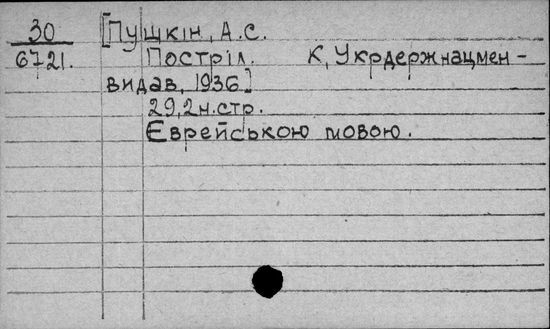 30 [Пушкін, А.С.
6721. Постріл. К, Укрдержнацмен-
видав, 1936]
29,2н.стр.
Єврейською мовою.